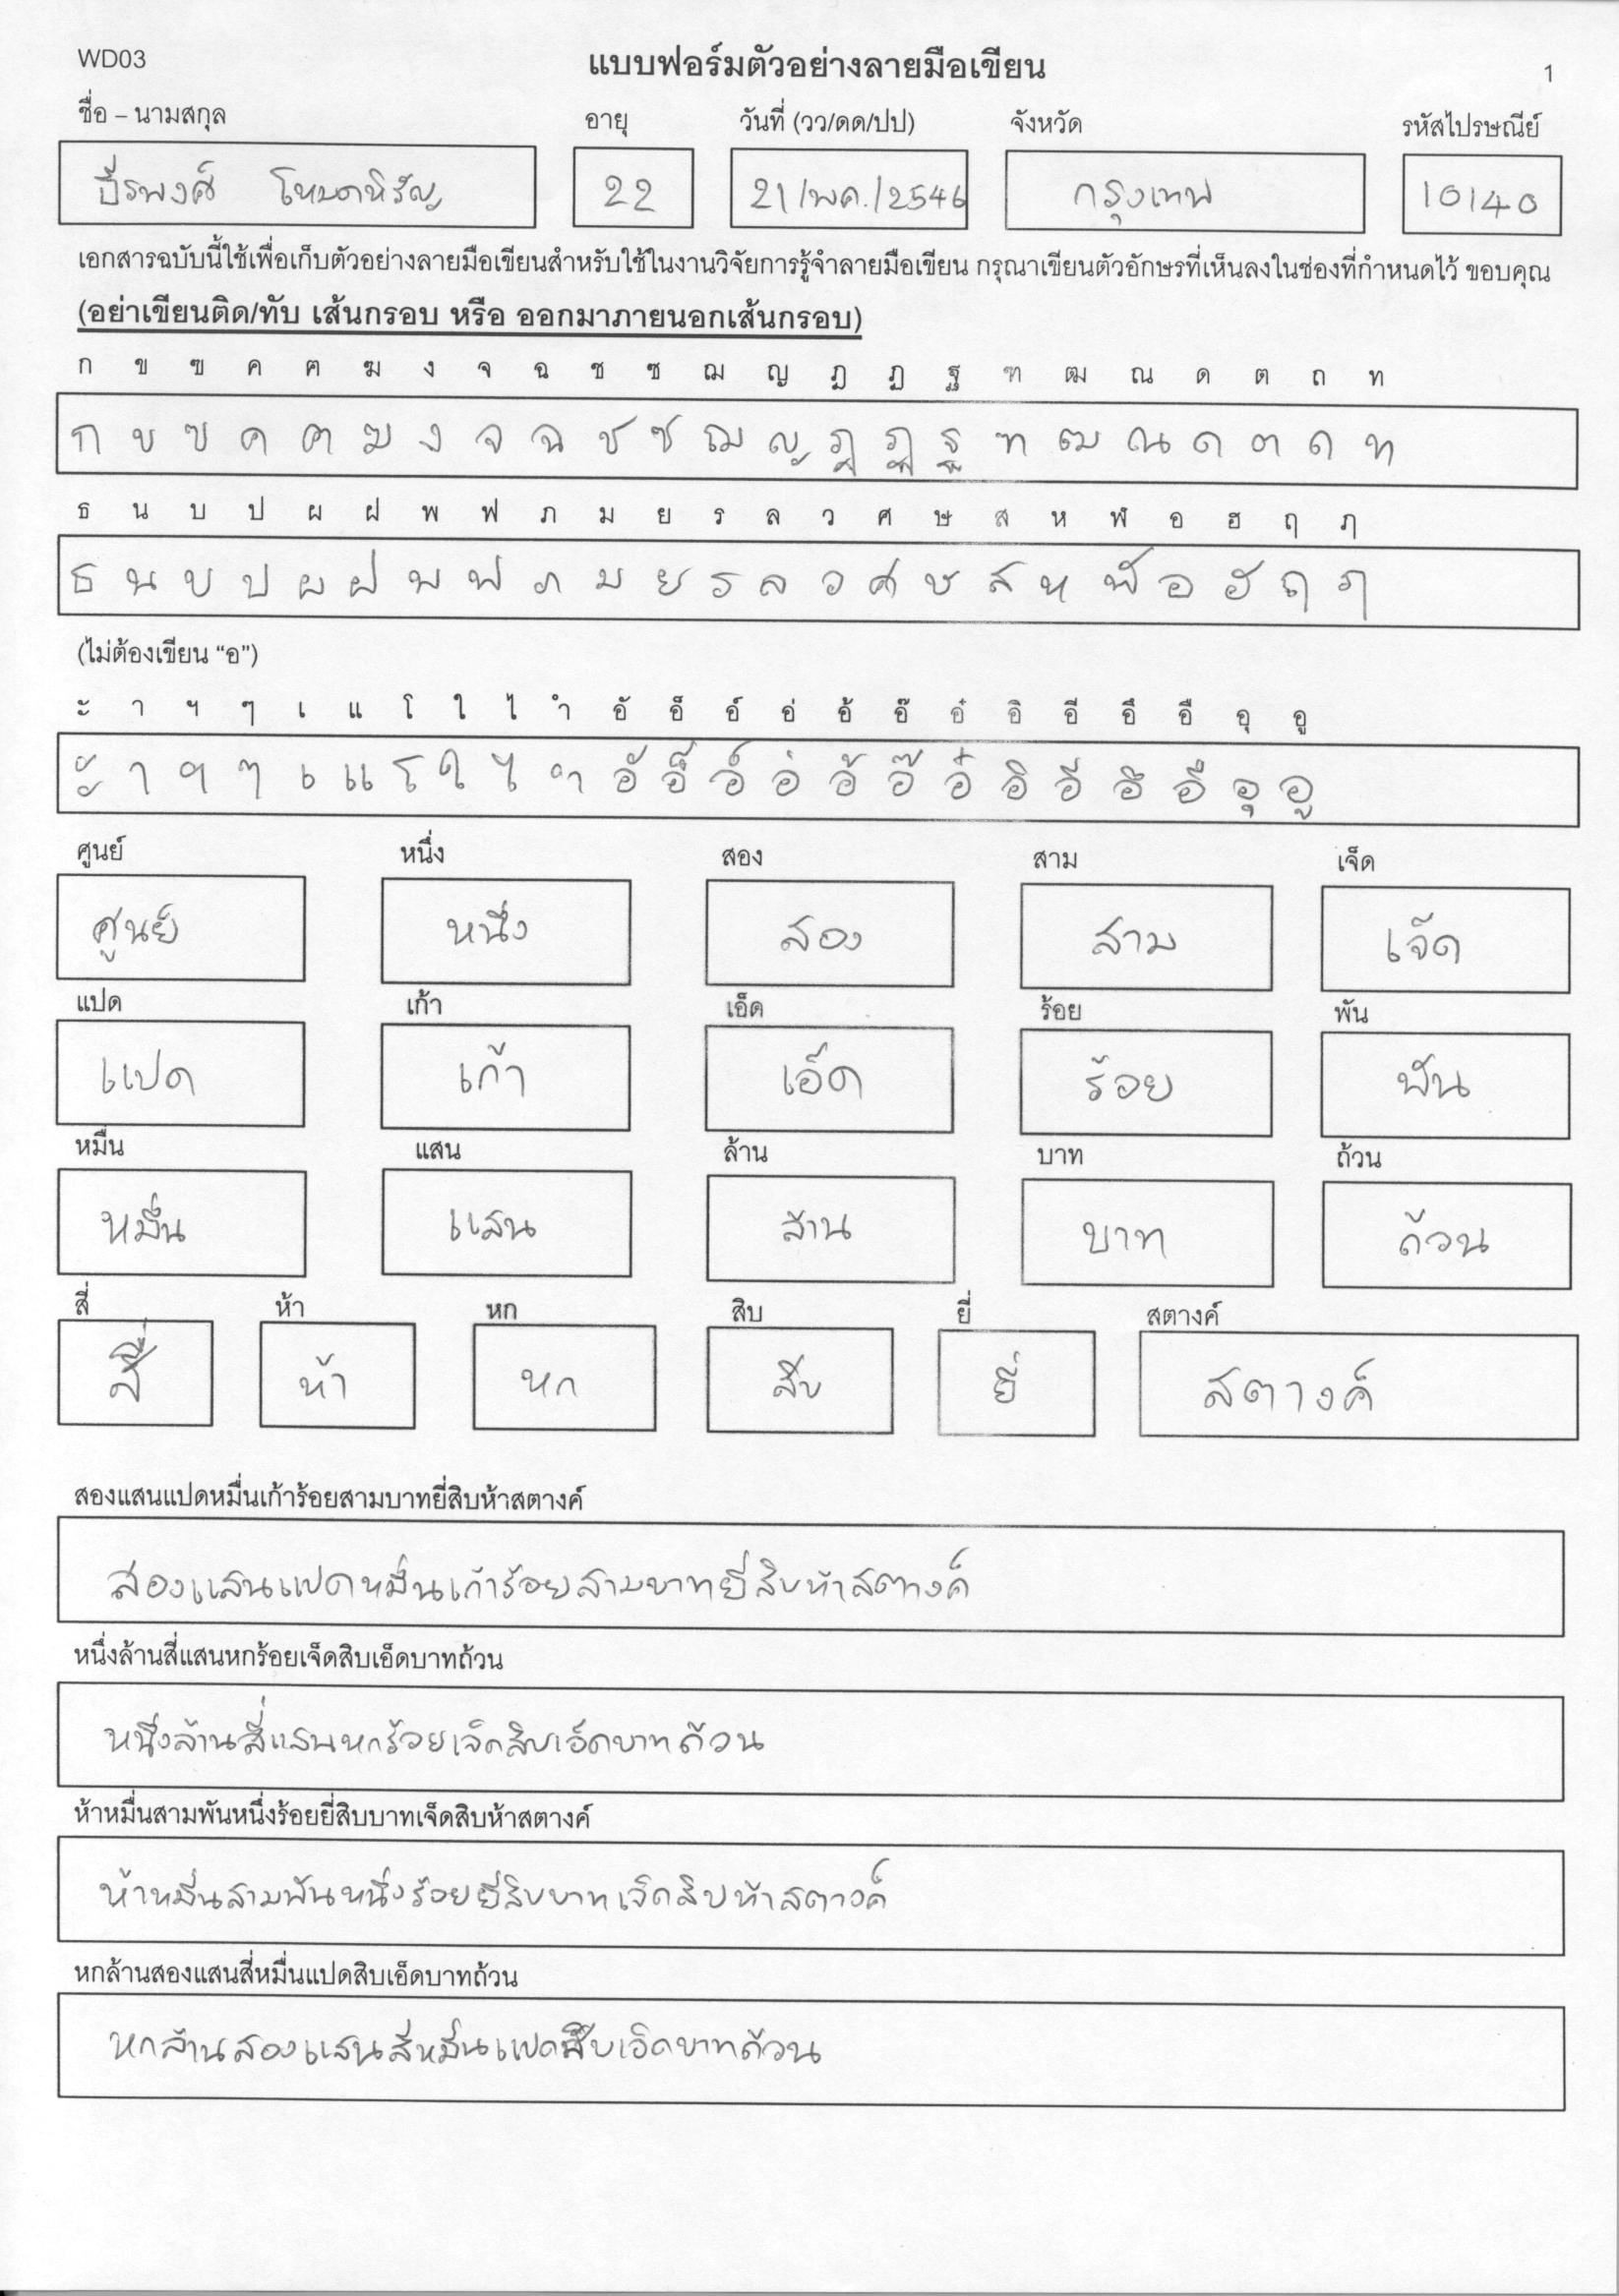 WD03 แบบฟอร์มตัวอย่างลายมือเขียน 1
ชื่อ – นามสกุล อายุ วันที่ (วว/ดด/ปป) จังหวัด รหัสไปรษณีย์
22 21/พค./2546 กรุงเทพ 10140
เอกสารฉบับนี้ใช้เพื่อเก็บตัวอย่างลายมือเขียนสำหรับใช้ในงานวิจัยการรู้จำลายมือเขียน กรุณาเขียนตัวอักษรที่เห็นลงในช่องที่กำหนดไว้ ขอบคุณ
(อย่าเขียนติด/ทับ เส้นกรอบ หรือ ออกมาภายนอกเส้นกรอบ)
ก ข ฃ ค ฅ ฆ ง จ ฉ ช ซ ฌ ญ ฎ ฏ ฐ ฑ ฒ ณ ด ต ถ ท
ก ข ฃ ค ฅ ฆ ง จ ฉ ช ซ ฌ ญ ฎ ฏ ฐ ฑ ฒ ณ ด ต ถ ท
ธ น บ ป ผ ฝ พ ฟ ภ ม ย ร ล ว ศ ษ ส ห ฬ อ ฮ ฤ ฦ
ธ น บ ป ผ ฝ พ ฟ ภ ม ย ร ล ว ศ ษ ส ห ฬ อ ฮ ฤ ฦ
(ไม่ต้องเขียน “อ”)
ะ า ฯ ๆ เ แ โ ใ ไ ำ อั อ็ อ์ อ่ อ้ อ๊ อ๋ อิ อี อึ อื อุ อู
ะ า ฯ ๆ เ แ โ ใ ไ ำ อั อ็ อ์ อ่ อ้ อ๊ อ๋ อิ อี อึ อื อุ อู
ศูนย์ หนึ่ง สอง สาม เจ็ด
ศูนย์ หนึ่ง สอง สาม เจ็ด
แปด เก้า เอ็ด ร้อย พัน
แปด เก้า เอ็ด ร้อย พัน
หมื่น แสน ล้าน บาท ถ้วน
หมื่น แสน ล้าน บาท ถ้วน
สี่ ห้า หก สิบ ยี่ สตางค์
สี่ ห้า หก สิบ ยี่ สตางค์
สองแสนแปดหมื่นเก้าร้อยสามบาทยี่สิบห้าสตางค์
สองแสนแปดหมื่นเก้าร้อยสามบาทยี่สิบห้าสตางค์
หนึ่งล้านสี่แสนหกร้อยเจ็ดสิบเอ็ดบาทถ้วน
หนึ่งล้านสี่แสนหกร้อยเจ็ดสิบเอ็ดบาทถ้วน
ห้าหมื่นสามพันหนึ่งร้อยยี่สิบบาทเจ็ดสิบห้าสตางค์
ห้าหมื่นสามพันหนึ่งร้อยยี่สิบบาทเจ็ดสิบห้าสตางค์
หกล้านสองแสนสี่หมื่นแปดสิบเอ็ดบาทถ้วน
หกล้านสองแสนสี่หมื่นแปดสิบเอ็ดบาทถ้วน